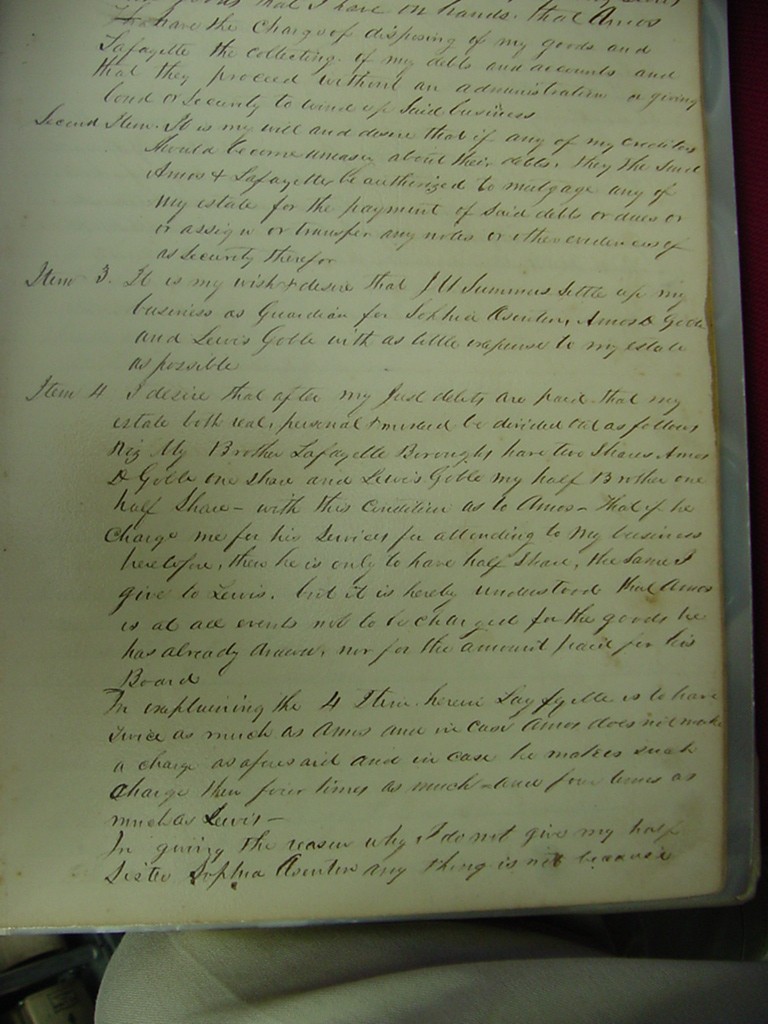 goods that I have on hands. that Amos
have the Charge of disposing of my goods and
Lafayette the collecting of my debts and accounts and
that they proceed without an administration or giving
bond or Security to wind up Said business
Second Item. It is my will and desire that if any of my creditors
Should become uneasy about their debts, they the Said
Amos & Lafayette be authorized to mutgage any of
my estate for the payment of Said debts or dues or
or assign or transfer any notes or other evidences of
as Security therefor
Item 3. It is my wish & desire that J W Summers Settle up my
business as Guardian for Sophia Asenten, Amos D Goble
and Lewis Goble with as little expense to my estate
as possible
Item 4 I desire that after my Just debts are paid that my
estate both real, personal & mixed be divided out as follows
Viz My Brother Lafayette Boroughs have two Shares Amos
D Goble one Share and Lewis Goble my half Brother one
half Share - with this Condition as to Amos - that if he
Charge me for his Services for attending to my business
heretofore, then he is only to have half Share, the Same I
give to Lewis. but it is hereby understood that Amos
is at all events not to be charged for the goods he
has already drawn, nor for the amount paid for his
Board
In explaining the 4 Item herein Layfyette is to have
twice as much as Amos and in case Amos does not make
a charge as aforesaid and in case he makes such
Charge then four times as much - and four times as
much as Lewis -
In giving the reason why I do not give my half
Sister Sophia Asenten any thing is not because